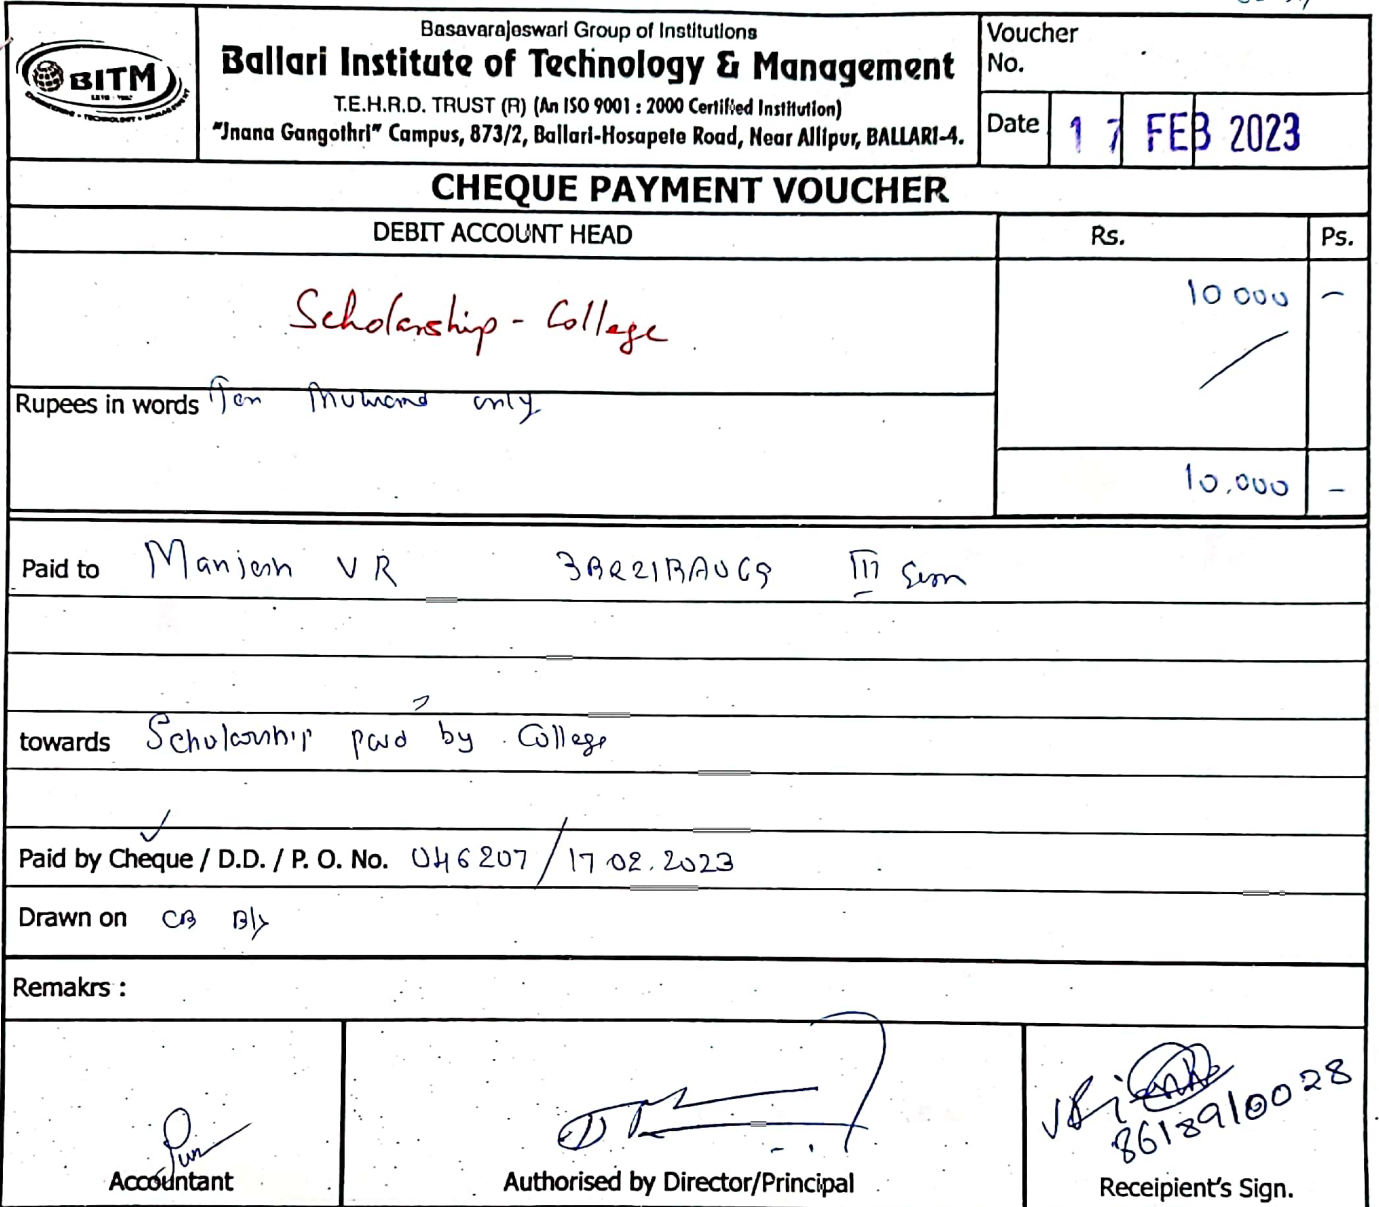 Basavarajeswari Group of Institutions
Ballari Institute of Technology & Management
T.E.H.R.D. TRUST (R) (An ISO 9001 : 2000 Certified Institution)
"Jnana Gangothri" Campus, 873/2, Ballari-Hosapete Road, Near Allipur, BALLARI-4.
BITM
Voucher
No.
Date 17 FEB 2023
CHEQUE PAYMENT VOUCHER
DEBIT ACCOUNT HEAD Rs. Ps.
Scholarship - College 10 000 –
Rupees in words Ten Thousand only
10,000 –
Paid to Manjesh V R III Sem
towards Scholarship paid by College
Paid by Cheque / D.D. / P. O. No. 046207 / 17 02.2023
Drawn on CB Bly
Remakrs :
8618910028
Accountant Authorised by Director/Principal Receipient's Sign.